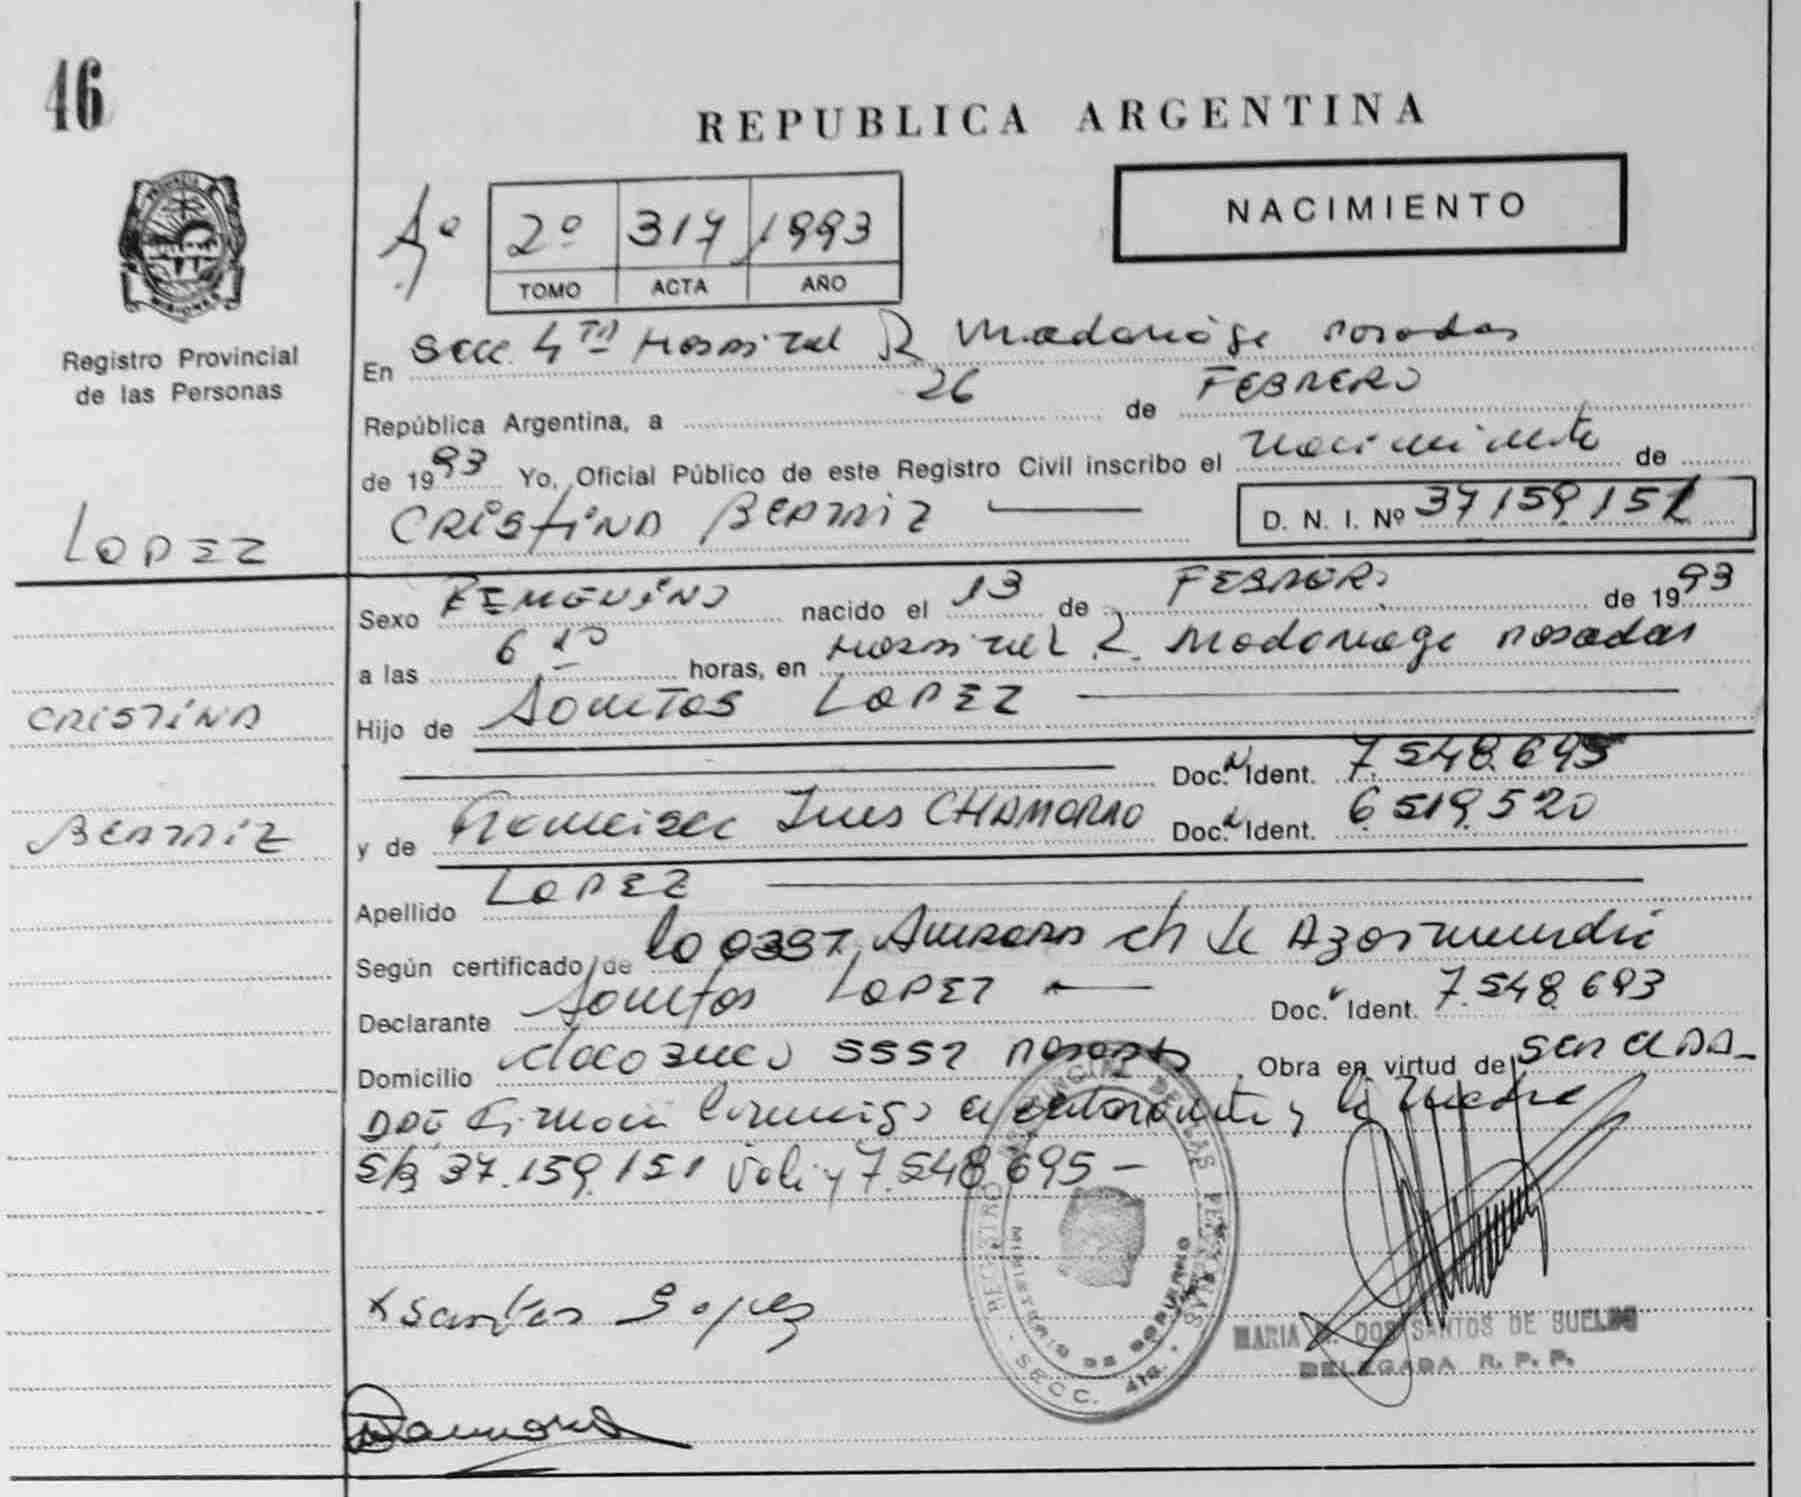 46
REPUBLICA ARGENTINA
NACIMIENTO
Aº 2º 317 1993
TOMO ACTA AÑO
Registro Provincial
de las Personas
En Secc 4ta Hospital R Madariaga Posadas
República Argentina, a 26 de FEBRERO
de 1993 Yo, Oficial Público de este Registro Civil inscribo el Nacimiento de
CRISTINA BEATRIZ D. N. I. Nº 37159151
LOPEZ
Sexo FEMENINO nacido el 13 de FEBRERO de 1993
a las 6 10 horas, en Hospital R. Madariaga Posadas
CRISTINA
Hijo de Santos LOPEZ
Doc. N Ident. 7.548.695
BEATRIZ
y de Francisca Ines CHAMORRO Doc. N Ident. 6.519.520
Apellido LOPEZ
Según certificado de 0397, Aurora Ch de
Declarante Santos LOPEZ Doc. Ident. 7.548.693
Domicilio 5557 Posadas Obra en virtud de ser el PA-
DRE Firman Conmigo el declarante y la Madre
S/B 37.159.151 Vale y 7.548.695 -
REGISTRO PROVINCIAL DE LAS PERSONAS
MINISTERIO DE GOBIERNO
SECC. 4ta.
x Santos Lopez
MARIA DOS SANTOS DE
DELEGADA R. P. P.